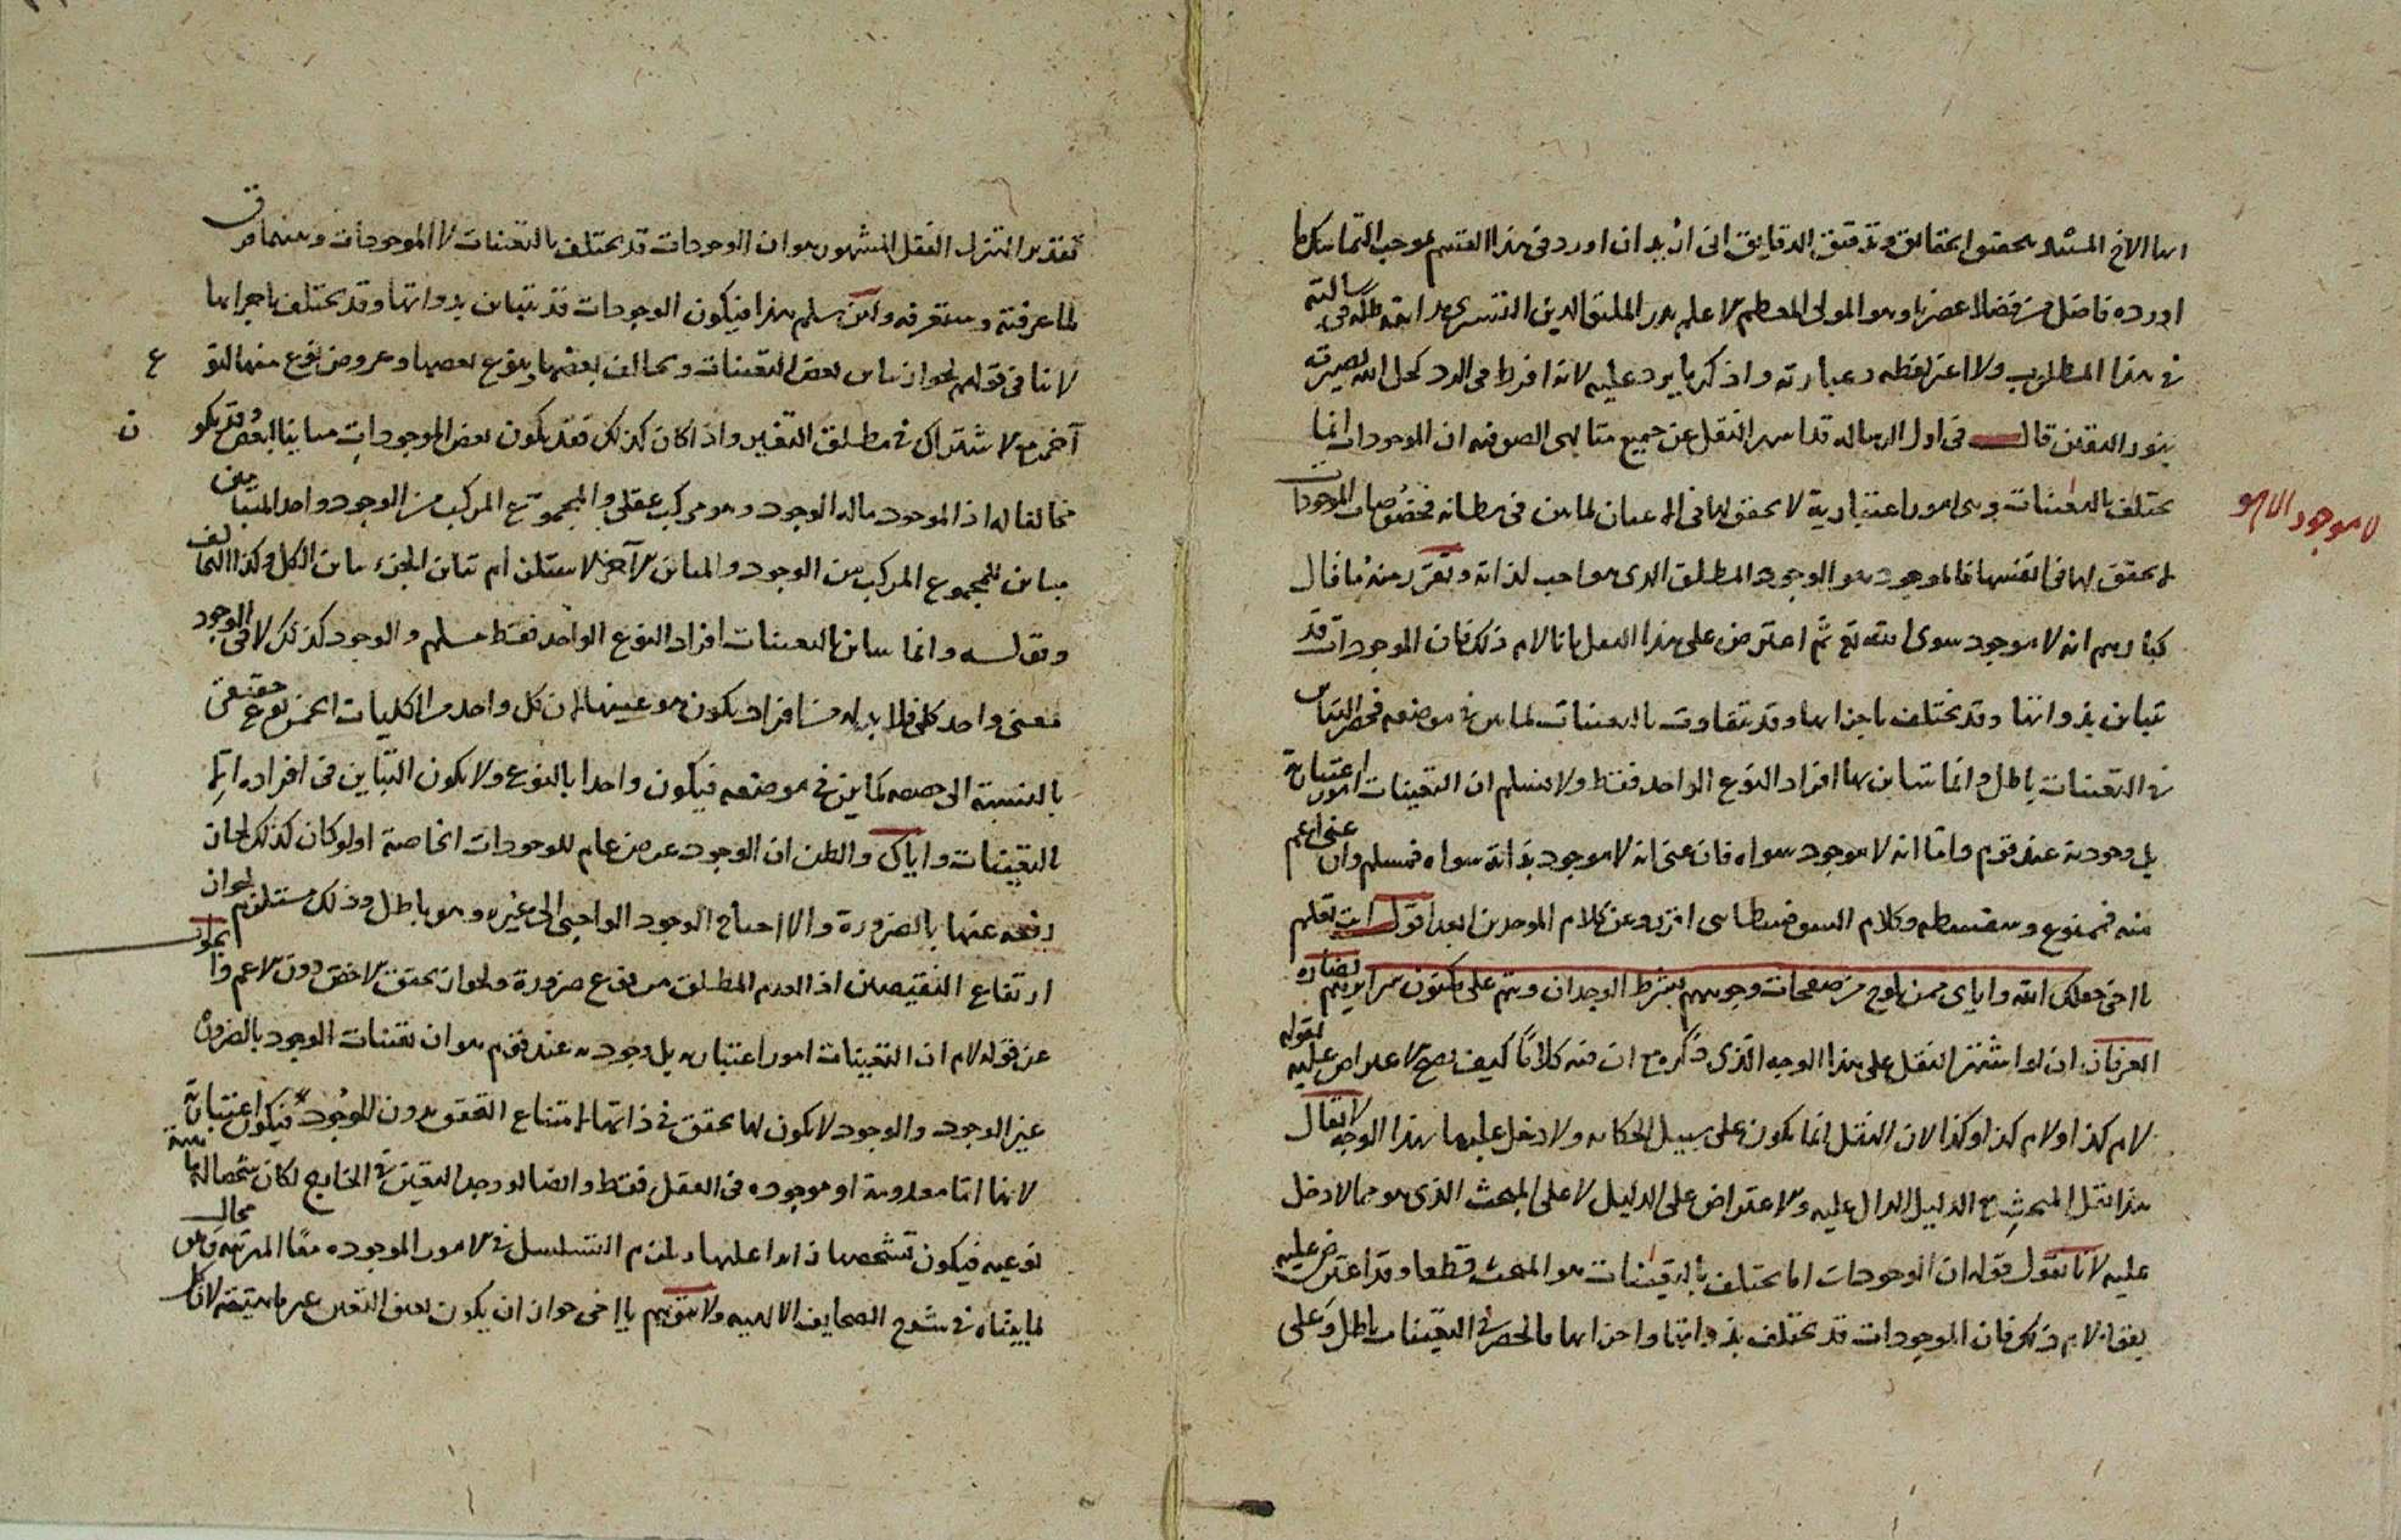 ايها الاخ المسترشد بتحقيق الحقايق وتدقيق الدقايق انى اريد ان اورد فى هذا القسم بموجب التماسك ما
اورده فاضل من فضلا عصرنا وهو المولى المعظم الاعلم بدر الملة والدين التسترى مد الله ظله فى رسالته
فى هذا المطلوب ولا اغير لفظه وعبارته واذكر ما يرد عليه لانه افرط فى الرد كحل الله بصيرته
بنور اليقين قال فى اول الرساله قد اشتهر النقل عن جميع متالهى الصوفيه ان الموجودات انما
يختلف بالتعينات وهى امور اعتبارية لا تحقق لها فى الاعيان لما بين فى مظانه فخصوصيات الموجودات
لا تحقق لها فى انفسها فالموجود هو الوجود المطلق الذى هو واجب لذاته وتقرر منه ما قال
كبارهم انه لا موجود سوى الله تع ثم اعترض على هذا النقل بانا لام ذلك فان الموجودات قد
تباين بذواتها وقد تختلف باجزائها وقد تتفاوت بالتعينات لما بين فى موضعه فحصر التباين
فى التعينات باطل وانما تتباين بها افراد النوع الواحد فقط ولا نسلم ان التعينات امور اعتبارية
بل وجودية عند قوم واما انه لا موجود سواه فان عنى انه لا موجود بذاته سواه فمسلم وان عنى اعم
منه فممنوع وسفسطه وكلام السوفسطاسى اقرب وعن كلام الموحدين ابعد اقول انت تعلم
يا اخى جعلك الله واياى ممن يلوح من صفحات وجوههم بشرط الوجدان ويتم على مكنون سرايرهم نضاره
العرفان ان لو اشتهر النقل على هذا الوجه الذى ذكره مع ان فيه كلاما كيف يصح الاعتراض عليه بقوله
لام كذا ولام كذا وكذا لان النقل انما يكون على سبيل الحكايه ولا دخل عليها بهذا الوجه لا يقال
هذا نقل المبحث مع الدليل الدال عليه والاعتراض على الدليل لا على المبحث الذى هو مما لا دخل
عليه لانا نقول قوله ان الوجودات انما يختلف بالتعينات هو المبحث قطعا وقد اعترض عليه
بقوله لام ذلك فان الموجودات قد تختلف بذواتها واجزائها فالحصر فى التعينات باطل وعلى
لا موجود الا هو
تقدير التنزل النقل المشهور هو ان الوجودات قد يختلف بالتعينات لا الموجودات وبينهما فرق
لما عرفته وستعرفه ولئن سلم هذا فيكون الوجودات قد يتباين بذواتها وقد يختلف باجزائها
لا ينافى قولهم لجواز تباين بعض التعينات وتخالف بعضها وتنوع بعضها وعروض نوع منها لنوع
آخر مع الاشتراك فى مطلق التعين واذا كان كذلك فقد يكون بعض الموجودات مباينا لبعض وقد يكون
مخالفا له اذ الموجود ماله الوجود وهو مركب عقلى والمجموع المركب من الوجود واحد المتباينين
مباين للمجموع المركب من الوجود والمباين الآخر لاستلزام تباين الجزء تباين الكل وكذا التخالف
وقوله وانما يتباين بالتعينات افراد النوع الواحد فقط مسلم والوجود كذلك لان الوجود
معنى واحد كلى فلا بد له من افراد يكون هو عينها لان كل واحد من الكليات الخمس نوع حقيقى
بالنسبة الى حصصه كما بين فى موضعه فيكون واحدا بالنوع ولا يكون التباين فى افراده الا
بالتعينات واياك والظن ان الوجود عرض عام للوجودات الخاصة اولو كان كذلك لجاز
رفعه عنها بالضرورة والا احتاج الوجود الواجبى الى غيره وهو باطل وذلك مستلزم لجواز
ارتفاع النقيضين اذ العدم المطلق مرفوع ضرورة ولجواز تحقق الاخص دون الاعم واما الجواب
عن قوله لام ان التعينات امور اعتباريه بل وجوديه عند قوم هو ان تعينات الوجود بالضرورة
غير الوجود والوجود لا يكون لها تحقق فى ذاتها لامتناع التحقق بدون الوجود فيكون اعتبارية
لانها اما معدومة او موجوده فى العقل فقط وايضا لو وجد التعين فى الخارج لكان شخصا له ماهية
نوعيه فيكون تشخصها زائدا عليها ويلزم التسلسل فى الامور الموجوده معا المرتبه وهو محال
لما بيناه فى شرح الصحايف الالهيه ولا تتوهم يا اخى جواز ان يكون تعين التعين عين ماهيته لانا